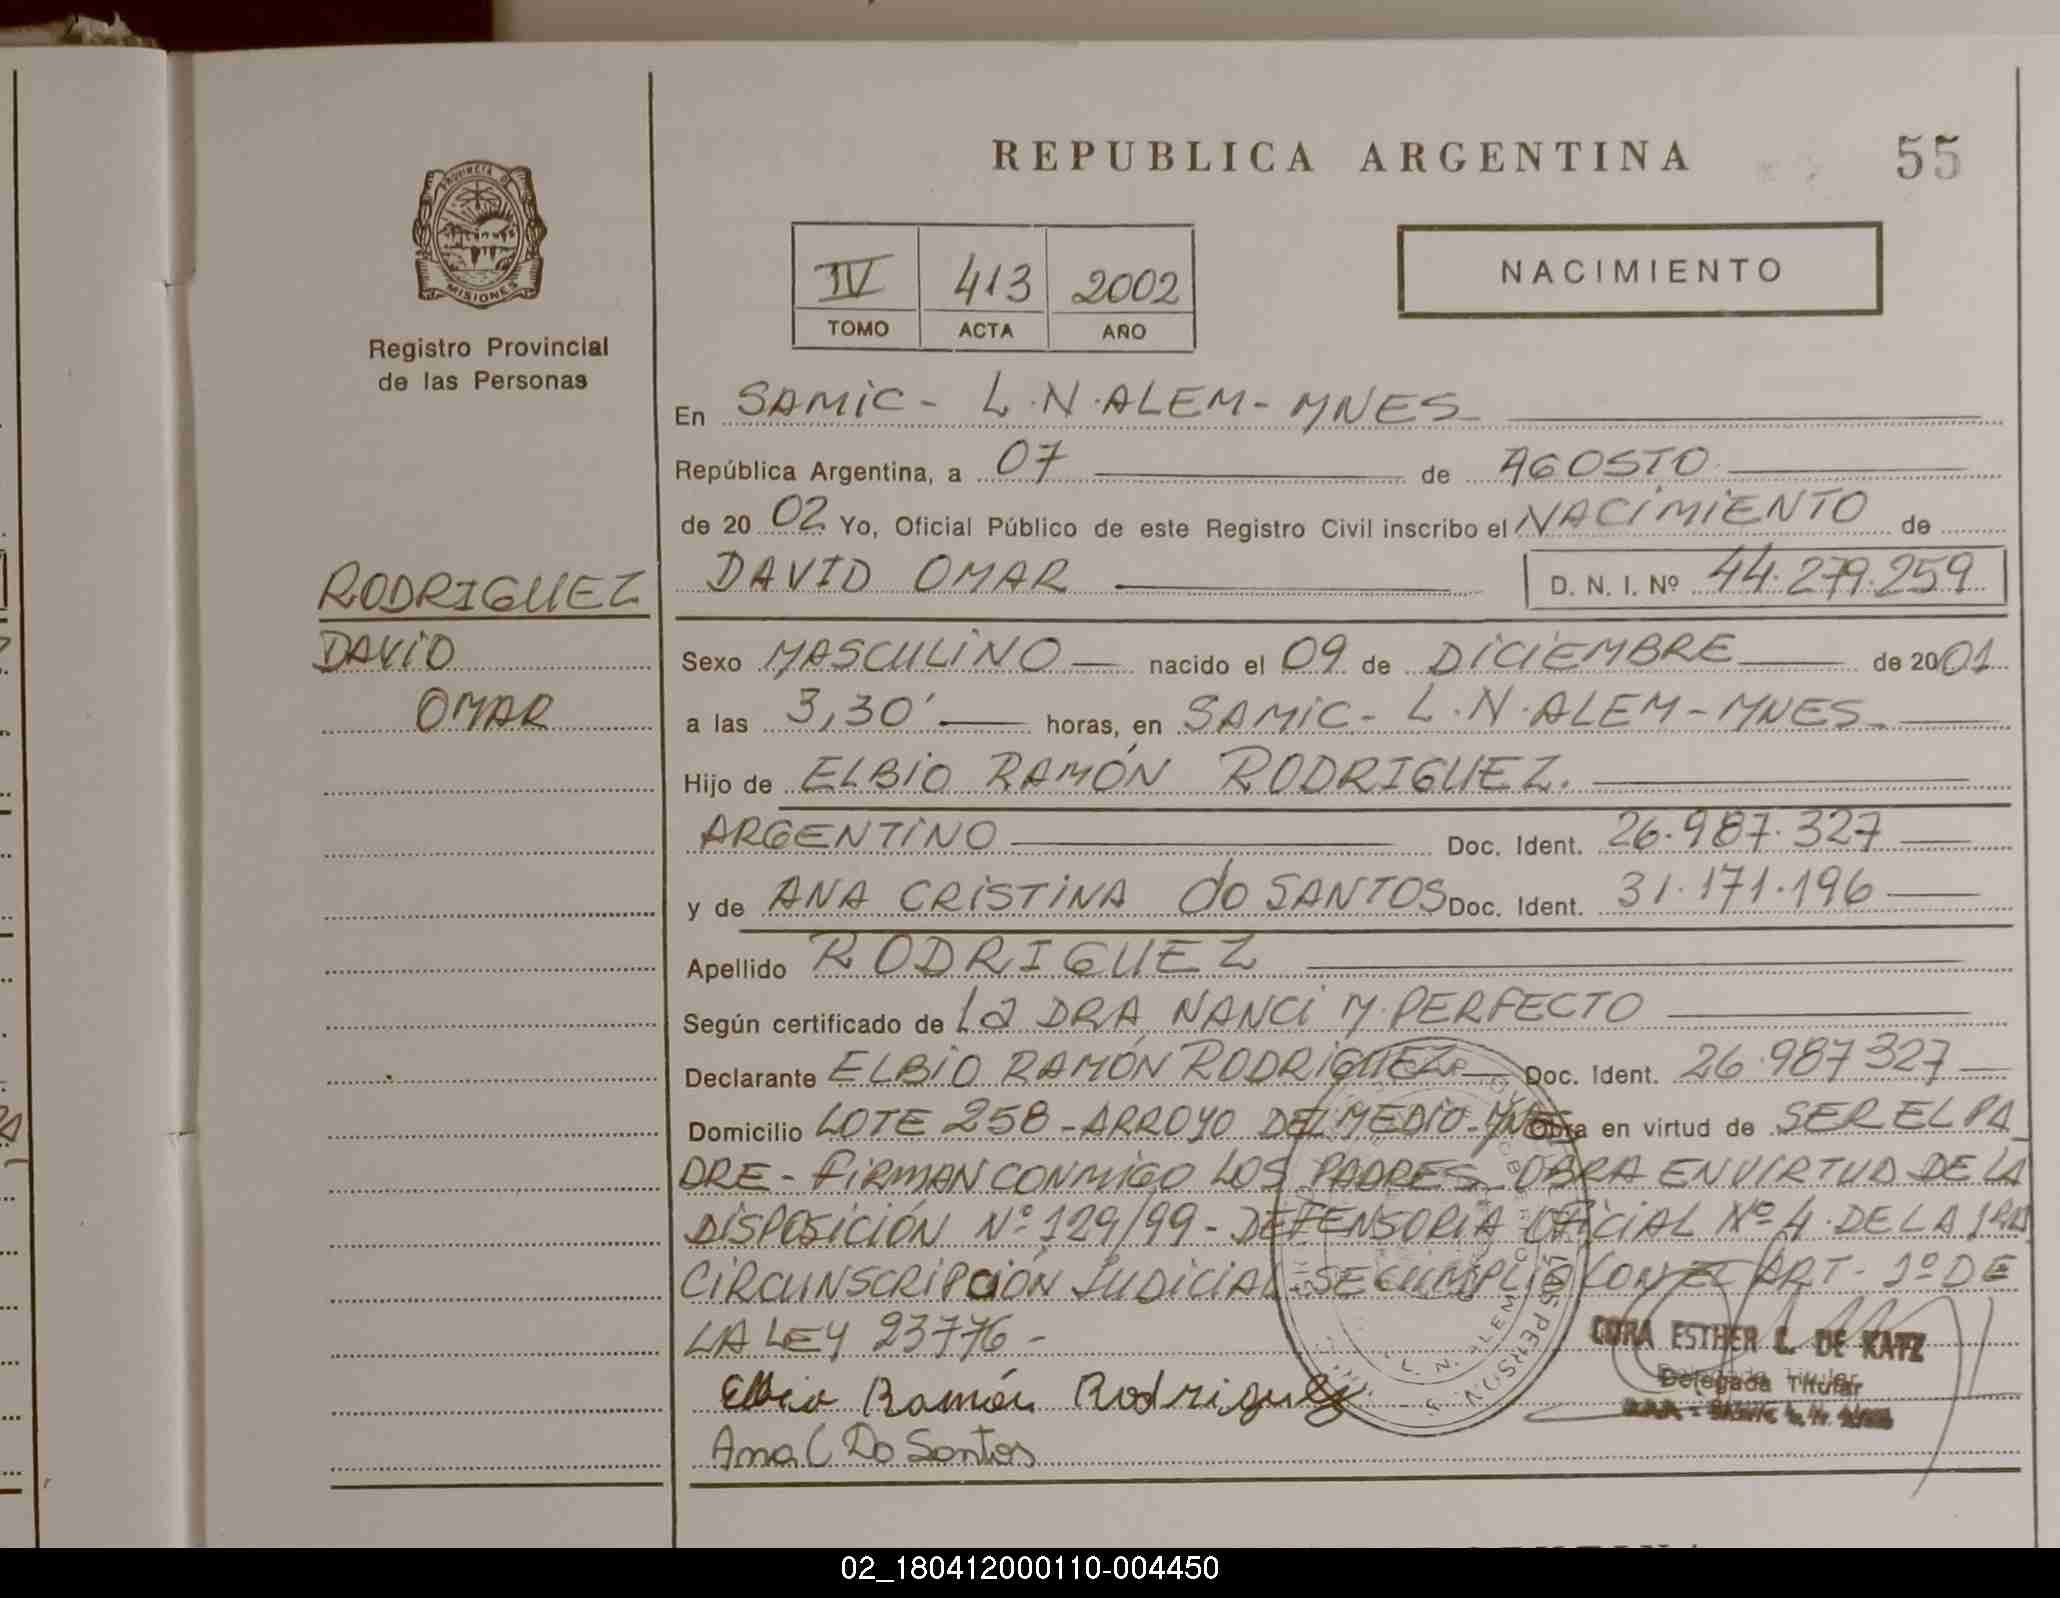 REPUBLICA ARGENTINA
55
PROVINCIA DE
MISIONES
Registro Provincial
de las Personas
IV 413 2002
TOMO ACTA AÑO
NACIMIENTO
En SAMIC - L.N. ALEM - MNES
República Argentina, a 07 de AGOSTO
de 20 02 Yo, Oficial Público de este Registro Civil inscribo el NACIMIENTO de
DAVID OMAR D. N. I. Nº 44.279.259
RODRIGUEZ
DAVID
OMAR
Sexo MASCULINO nacido el 09 de DICIEMBRE de 2001
a las 3,30' horas, en SAMIC - L.N. ALEM - MNES
Hijo de ELBIO RAMÓN RODRIGUEZ.
ARGENTINO Doc. Ident. 26.987.327
y de ANA CRISTINA do SANTOS Doc. Ident. 31.171.196
Apellido RODRIGUEZ
Según certificado de La DRA NANCI M. PERFECTO
Declarante ELBIO RAMÓN RODRIGUEZ Doc. Ident. 26.987327
Domicilio LOTE 258 - ARROYO DEL MEDIO - MNES Obra en virtud de SER EL PA
DRE - FIRMAN CONMIGO LOS PADRES - OBRA EN VIRTUD DE LA
DISPOSICIÓN Nº 129/99 - DEFENSORIA OFICIAL Nº 4 DE LA 1RA
CIRCUNSCRIPCIÓN JUDICIAL - SE CUMPLIÓ CON EL ART - 1º DE
LA LEY 23776 -
CORA ESTHER C. DE KATZ
Delegada Titular
Elbio Ramón Rodriguez
Ana C Do Santos
02_180412000110-004450